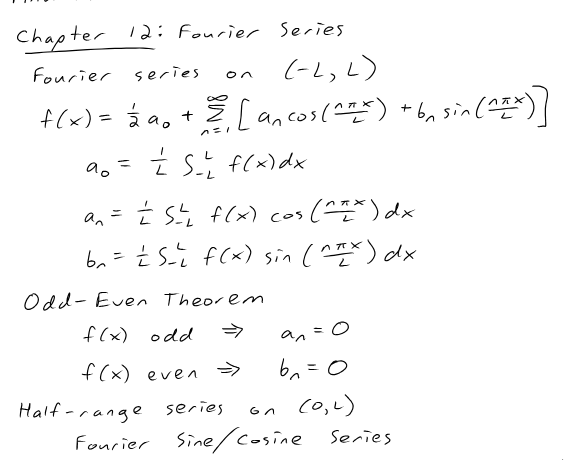 Chapter 12: Fourier Series
Fourier series on (-L, L)
f(x) = 1/2 a₀ + ∑_{n=1}^{∞} [aₙ cos(nπx/L) + bₙ sin(nπx/L)]
a₀ = 1/L ∫_{-L}^{L} f(x) dx
aₙ = 1/L ∫_{-L}^{L} f(x) cos(nπx/L) dx
bₙ = 1/L ∫_{-L}^{L} f(x) sin(nπx/L) dx
Odd-Even Theorem
f(x) odd ⇒ aₙ = 0
f(x) even ⇒ bₙ = 0
Half-range series on (0, L)
Fourier Sine/Cosine Series